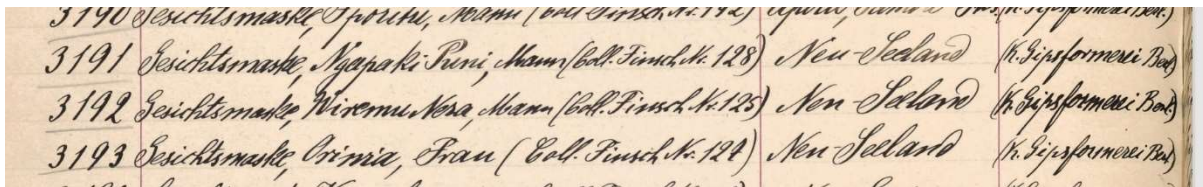 3190 Gesichtsmaske, Mann (Coll. Finsch Nr. 142) Apolu,
3191 Gesichtsmaske, Ngapaki Puni, Mann (Coll. Finsch Nr. 128) Neu-Seeland (K. Gipsformerei Berl.)
3192 Gesichtsmaske, Wiremu Nera, Mann (Coll. Finsch Nr. 125) Neu-Seeland (K. Gipsformerei Berl.)
3193 Gesichtsmaske, Orinia, Frau (Coll. Finsch Nr. 124) Neu-Seeland (K. Gipsformerei Berl.)